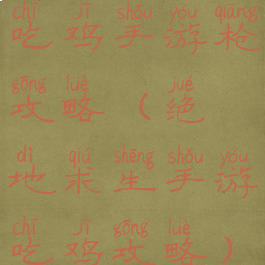 chī jī shǒu yóu qiāng
吃鸡手游枪
gōng lüè jué
攻略（绝
dì qiú shēng shǒu yóu
地求生手游
chī jī gōng lüè
吃鸡攻略）